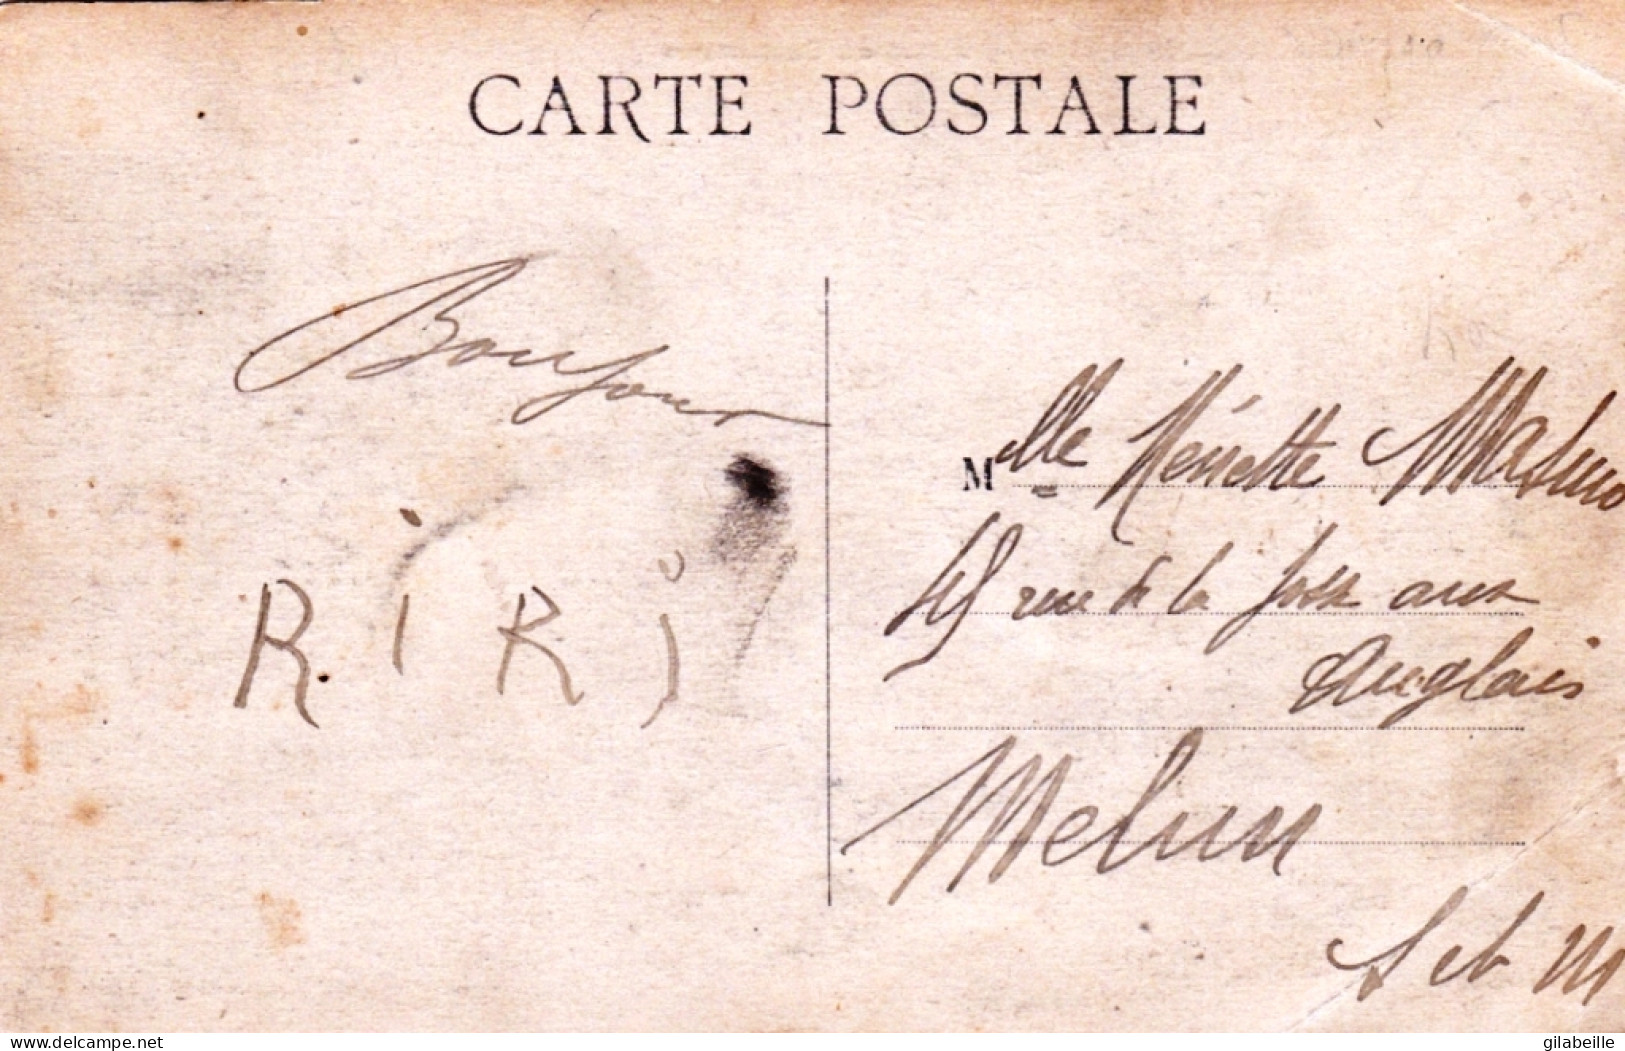 CARTE POSTALE
Bonjour
RiRi
Mlle Henriette
45 rue de la foss aux
Anglais
Melun
S et M
delcampe.net
gilabeille